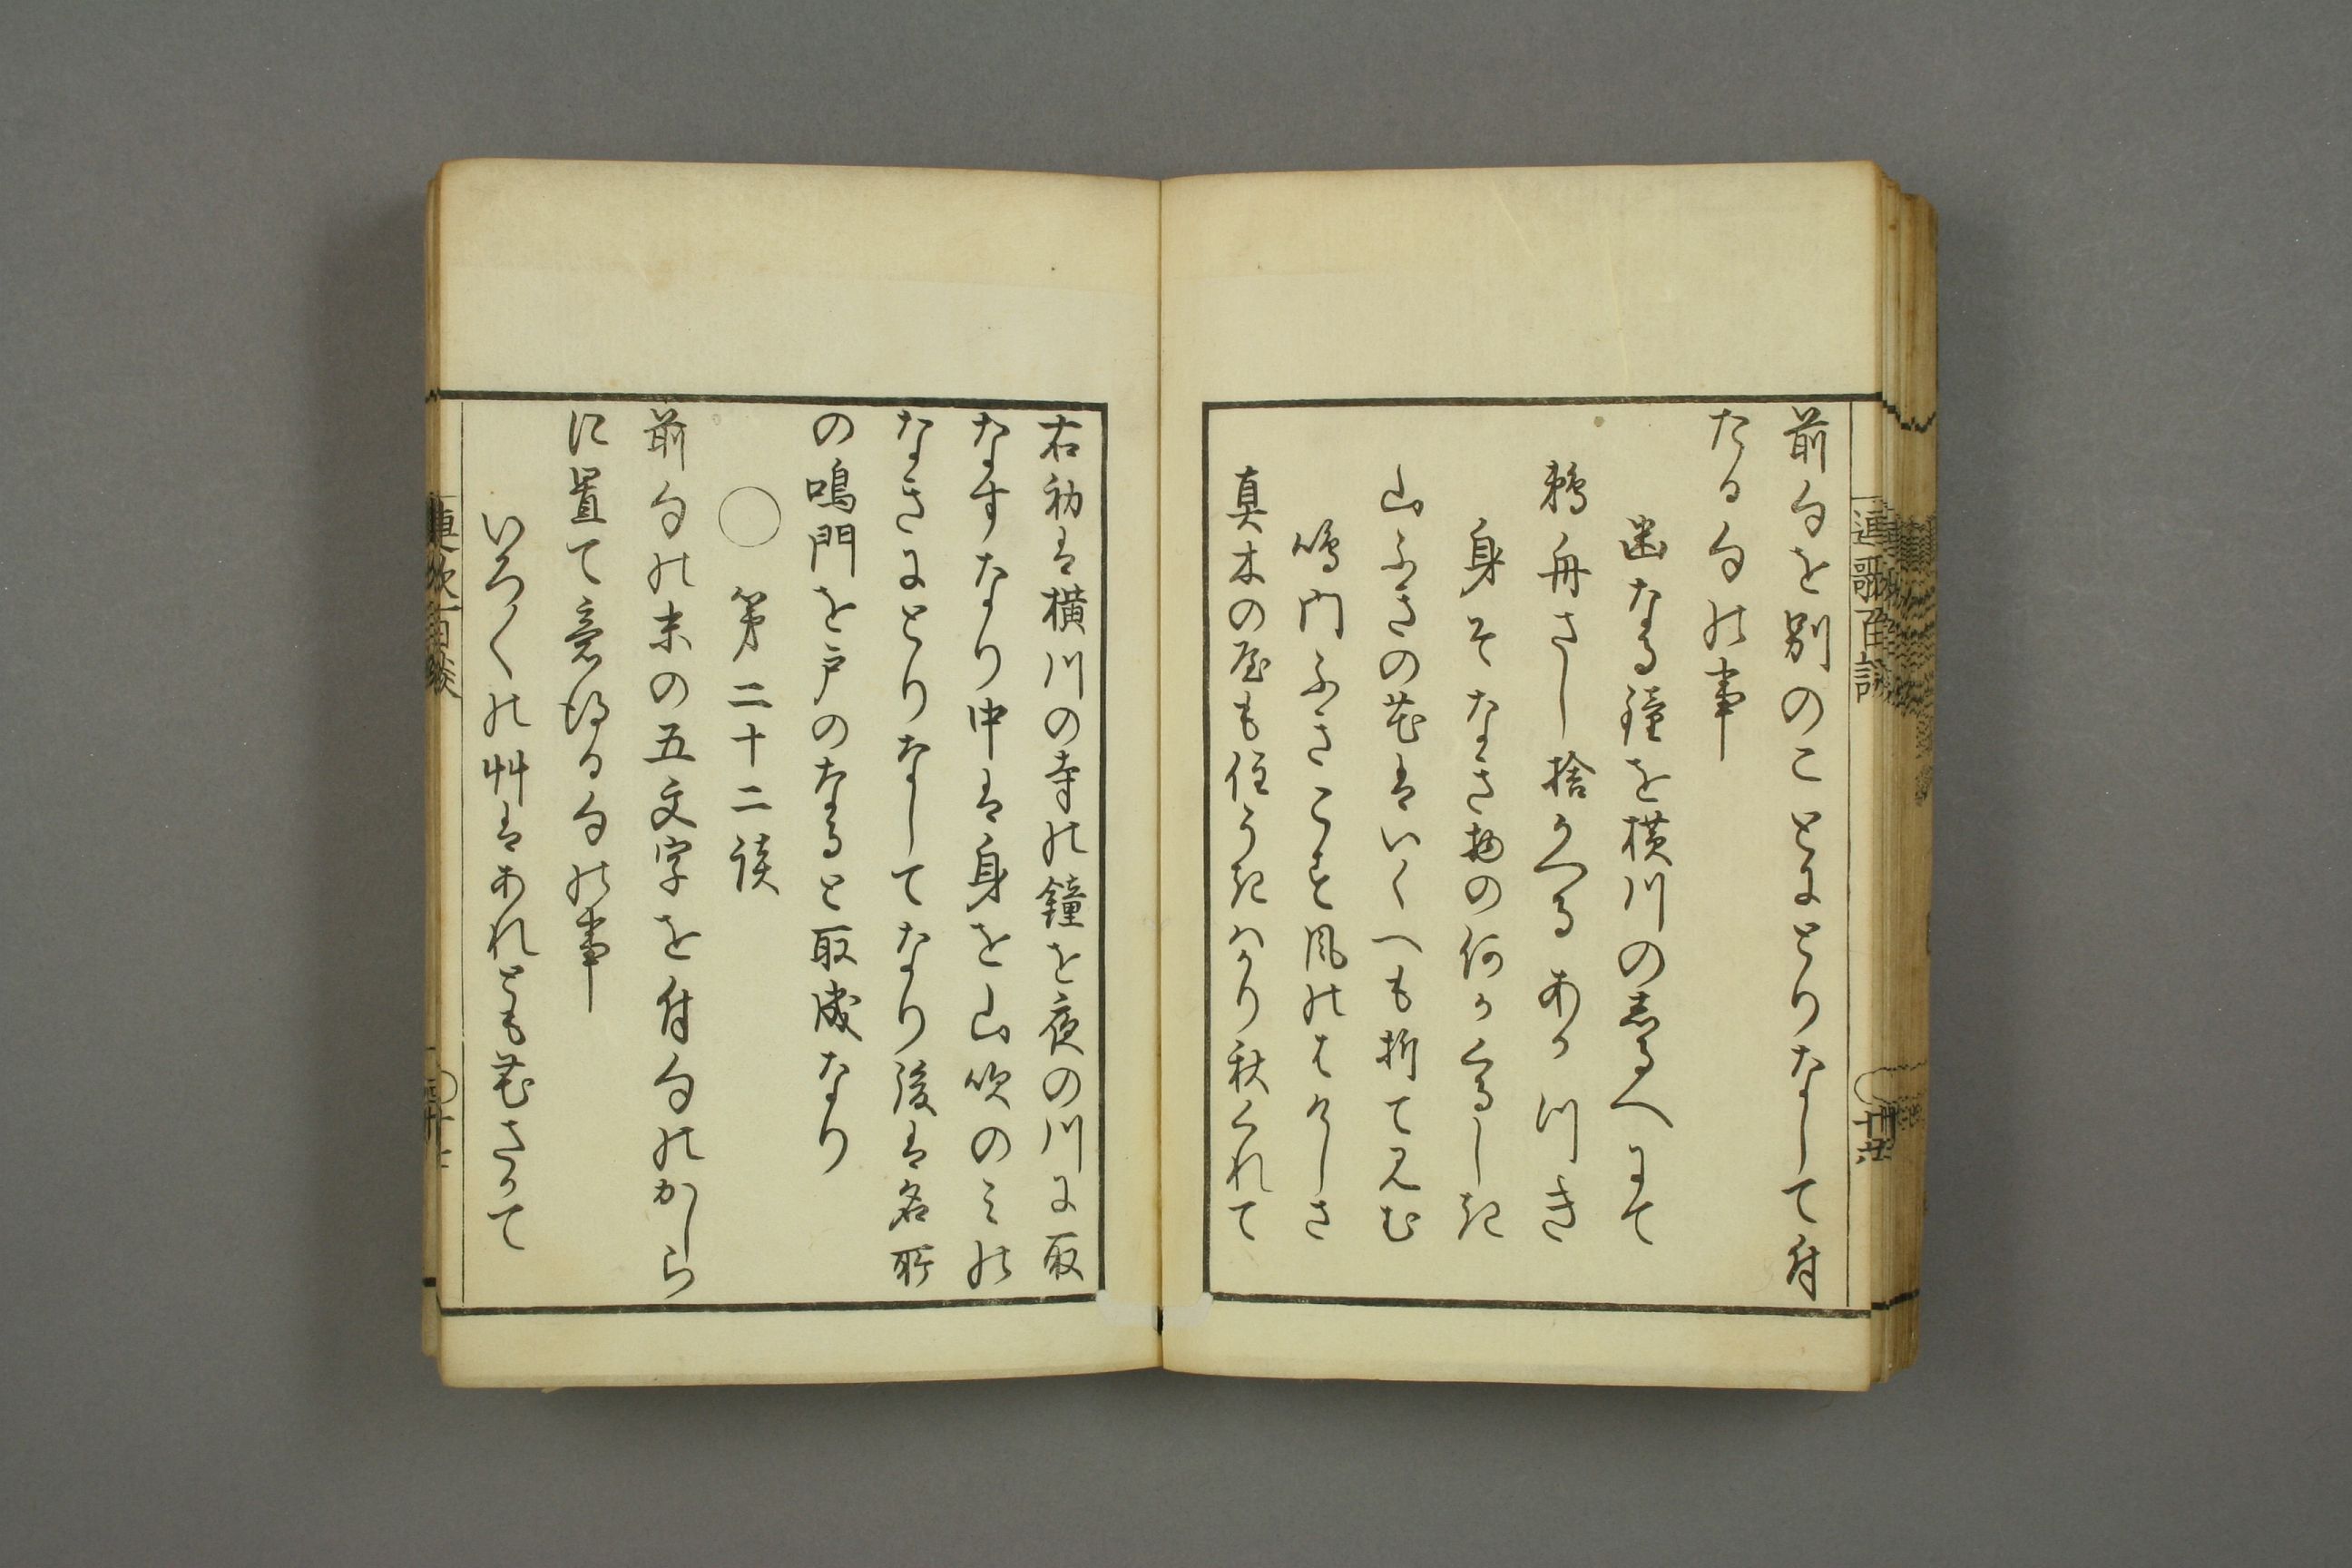 前句を別のことにとりなして付
たる句の事
幽なる鐘を横川のしるへにて
鵜舟さし捨かへるあかつき
身そなき物の何かくるしき
山ふきの花はいくへも折てみむ
鳴門ふきこす風のはけしさ
真木の屋も住うきはかり秋くれて
連歌百談
右初は横川の寺の鐘を夜の川に取
なすなり中は身を山吹のみの
なきにとりなしてなり後は名所
の鳴門を戸のなると取成なり
○ 第二十二談
前句の末の五文字を付句のかしら
に置て意得る句の事
いろ〳〵の艸はあれとも花さかて